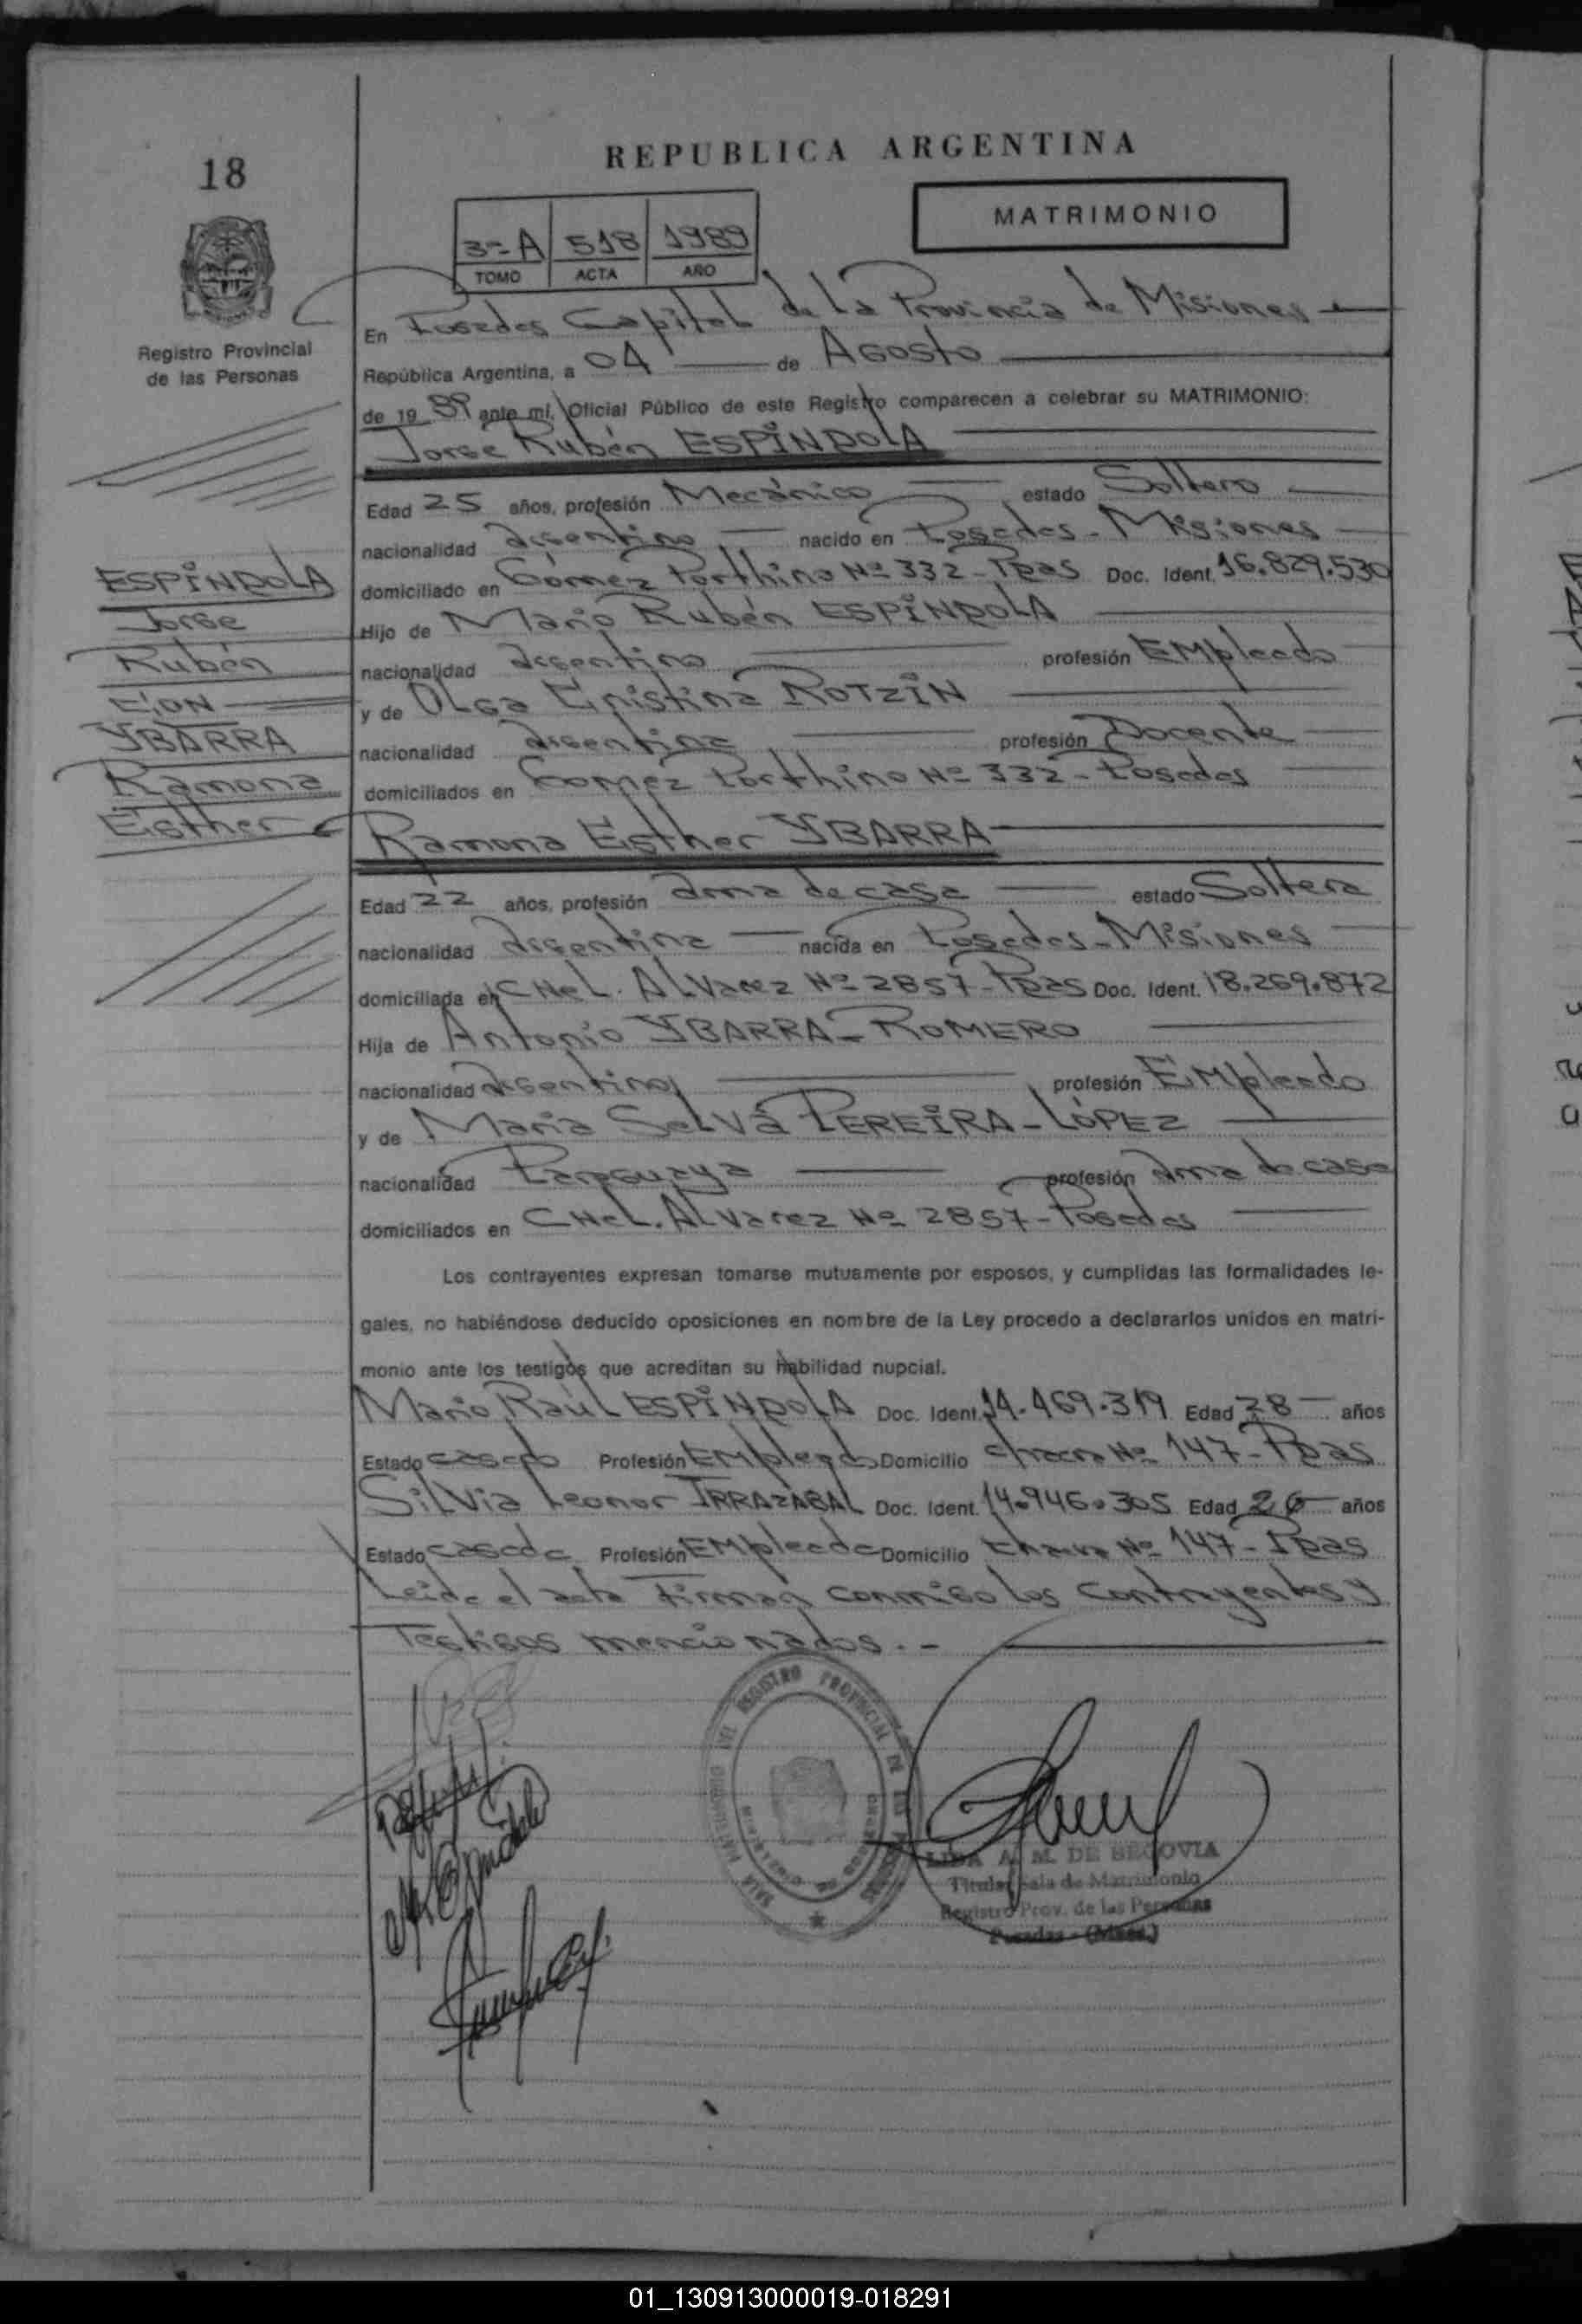 18
REPUBLICA ARGENTINA
MATRIMONIO
3º A 518 1989
TOMO ACTA AÑO
Registro Provincial
de las Personas
En Posadas Capital de La Provincia de Misiones
República Argentina, a 04 de Agosto
de 19 89 ante mí, Oficial Público de este Registro comparecen a celebrar su MATRIMONIO:
Jorge Rubén ESPÍNDOLA
Edad 25 años, profesión Mecánico estado Soltero
nacionalidad argentino nacido en Posadas - Misiones
domiciliado en Gómez Porthino Nº 332 - Pdas Doc. Ident. 16.829.530
Hijo de Mario Rubén ESPÍNDOLA
nacionalidad argentino profesión Empleado
y de Olga Cristina ROTZIN
nacionalidad argentina profesión Docente
domiciliados en Gomez Porthino Nº 332 - Posadas
ESPÍNDOLA
Jorge
Rubén
CON
YBARRA
Ramona
Esther
Ramona Esther YBARRA
Edad 22 años, profesión ama de casa estado Soltera
nacionalidad argentina nacida en Posadas - Misiones
domiciliada en CNeL. Alvarez Nº 2857 - Pdas Doc. Ident. 18.269.872
Hija de Antonio YBARRA - ROMERO
nacionalidad argentino profesión Empleado
y de Maria Selva PEREIRA - LÓPEZ
nacionalidad Paraguaya profesión ama de casa
domiciliados en CNeL. Alvarez Nº 2857 - Posadas
Los contrayentes expresan tomarse mutuamente por esposos, y cumplidas las formalidades le-
gales, no habiéndose deducido oposiciones en nombre de la Ley procedo a declararlos unidos en matri-
monio ante los testigos que acreditan su habilidad nupcial.
Mario Raúl ESPÍNDOLA Doc. Ident. 14.469.319 Edad 28 años
Estado casado Profesión Empleado Domicilio chacra Nº 147 - Pdas
Silvia Leonor IRRAZABAL Doc. Ident. 14.946.305 Edad 26 años
Estado casada Profesión Empleada Domicilio chacra Nº 147 - Pdas
Leida el acta Firman conmigo los contrayentes y
Testigos mencionados. -
REGISTRO PROVINCIAL DE LAS PERSONAS
A. M. DE SEGOVIA
Titular Sala de Matrimonio
Registro Prov. de las Personas
Posadas - (Mnes.)
01_130913000019-018291